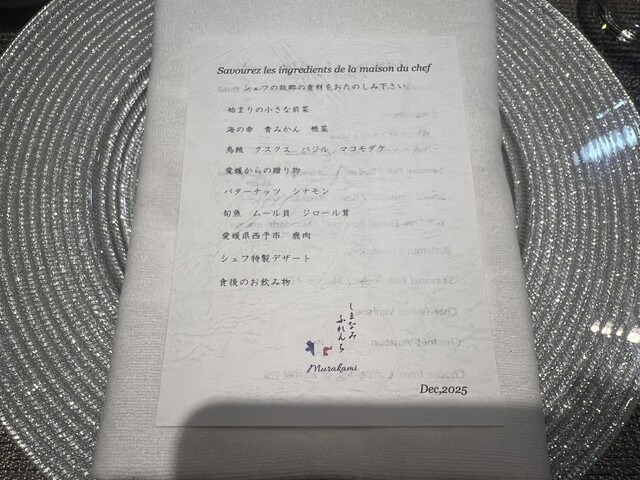 Savourez les ingredients de la maison du chef
シェフの故郷の食材をおたのしみ下さい
始まりの小さな前菜
海の幸　青みかん　根菜
烏賊　クスクス　バジル　マコモダケ
愛媛からの贈り物
バターナッツ　シナモン
旬魚　ムール貝　ジロール茸
愛媛県西予市　鹿肉
シェフ特製デザート
食後のお飲み物
しまなみ
ふれんち
Murakami
Dec,2025